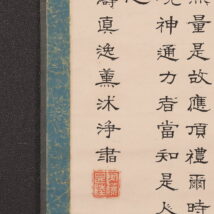 無量是故應頂禮爾時
現神通力者當知是人
真逸薰沐淨書